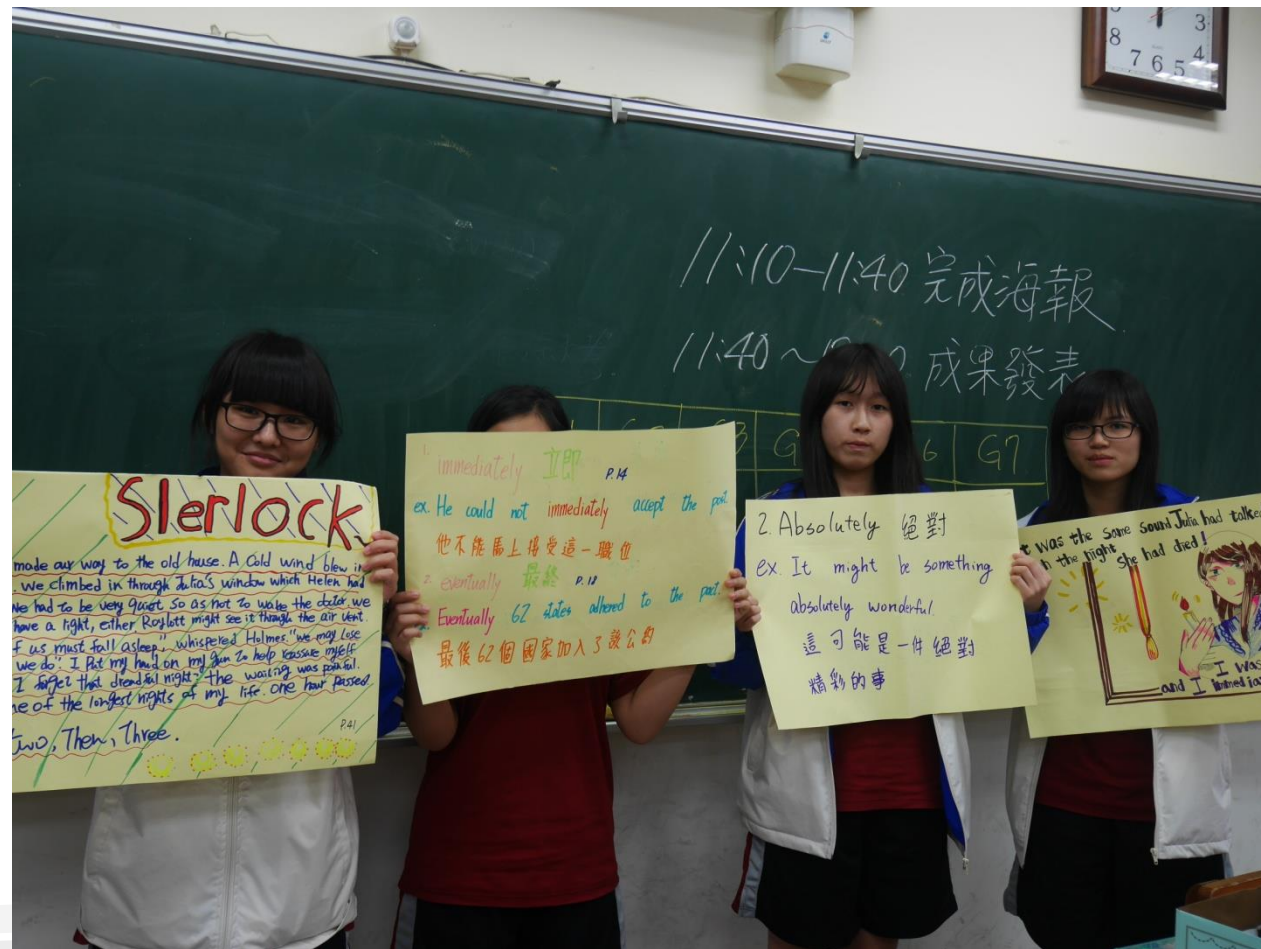 8 7 6 5 4 3
11:10—11:40 完成海報
11:40~ 成果發表
G7
Slerlock
made our way to the old house. A Cold wind blew in
. we climbed in through Julia's window which Helen had
We had to be very quiet so as not to wake the doctor. we
have a light, either Roylott might see it through the air vent.
f us must fall asleep," whispered Holmes. "we may lose
we do". I Put my hand on my gun to help reassure myself
I forget that dreadful night? the waiting was painful.
ne of the longest nights of my life. One hour passed
Two, Then, Three.
P.41
1. immediately 立即 P.14
ex. He could not immediately accept the post.
他不能馬上接受這一職位
2. eventually 最終 P.18
Eventually 62 states adhered to the pact.
最後62個國家加入了該公約
2. Absolutely 絕對
ex. It might be something
absolutely wonderful.
這可能是一件絕對
精彩的事
t was the same sound Julia had talked
n the night she had died!
I was
and I immedia